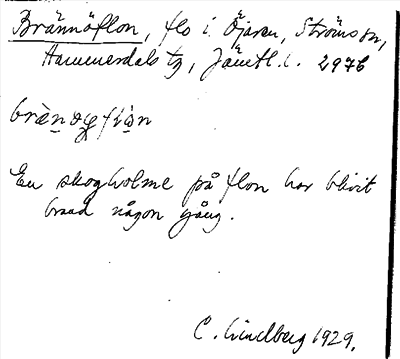 Brännöflon, flo i Öjaren, Ströms sn,
Hammerdals tg, Jämtl. l. 2976
En skogholme på flon har blivit
brand någon gång.
C. Lindberg 1929.